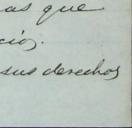 as que
cio.
sus derechos